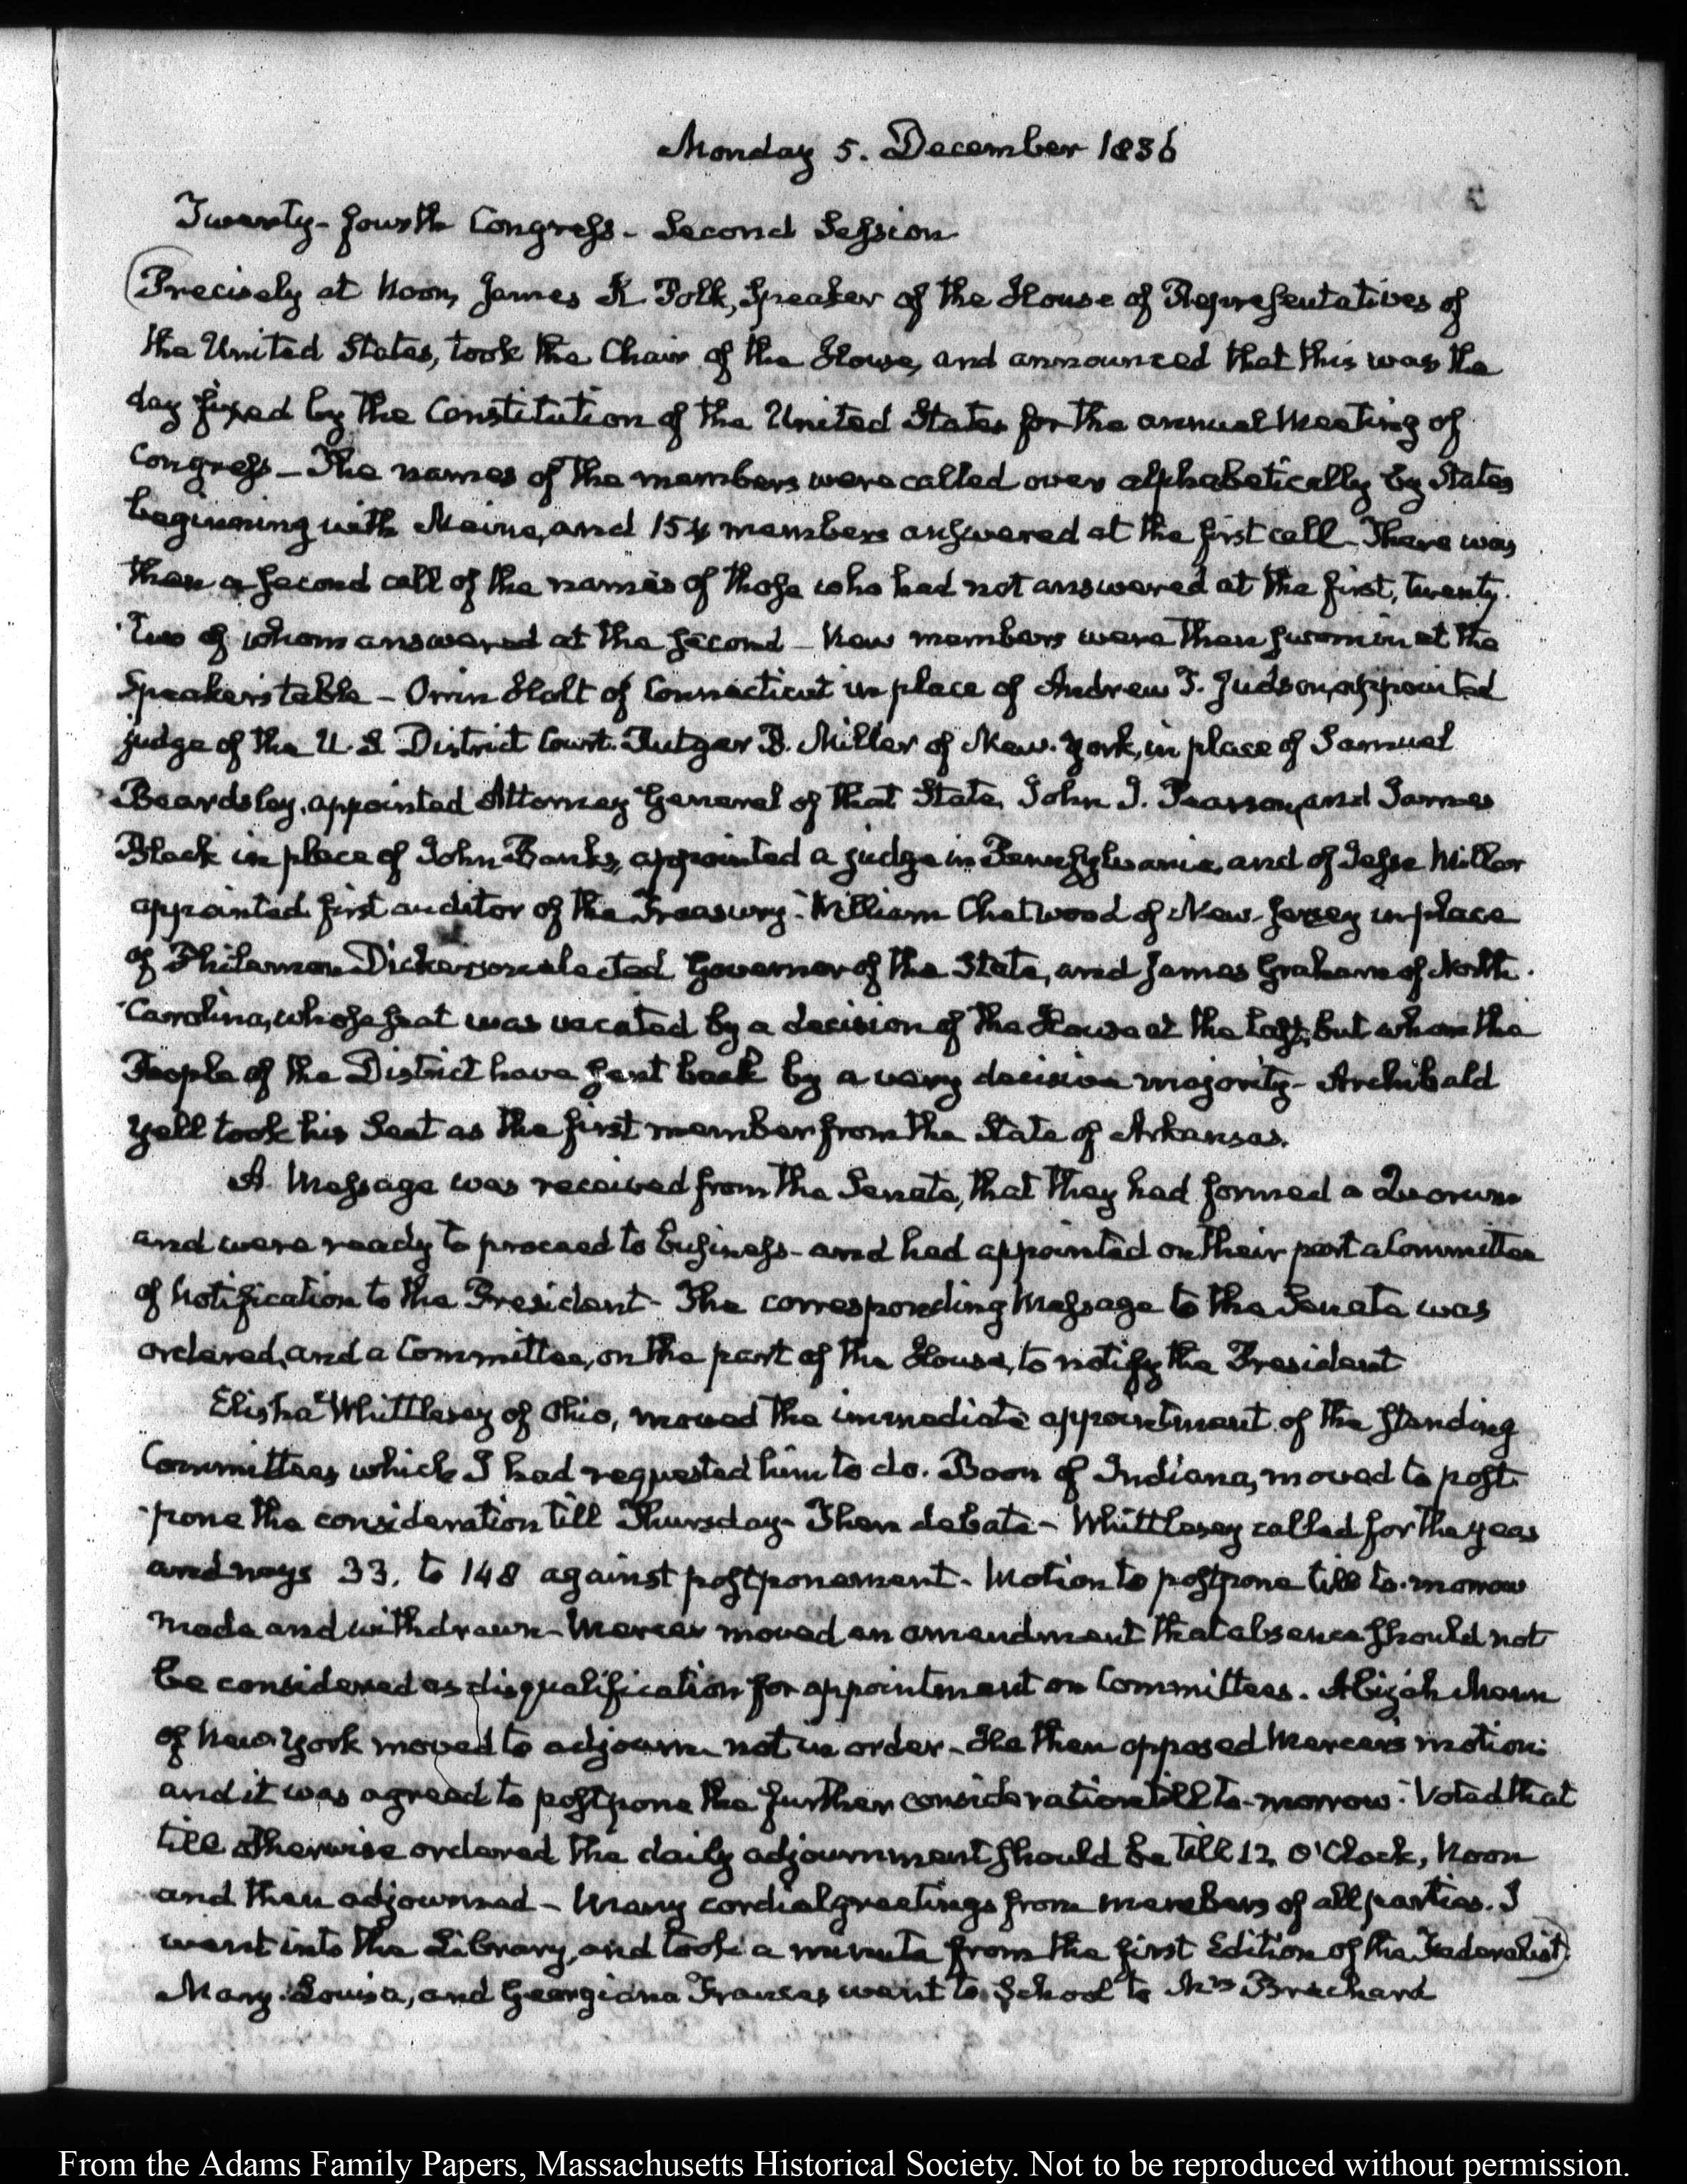 Monday 5. December 1836
Twenty-fourth Congress - Second Session
(Precisely at Noon, James K Polk, Speaker of the House of Representatives of
the United States, took the Chair of the House, and announced that this was the
day fixed by the Constitution of the United States for the annual Meeting of
Congress - The names of the members were called over alphabetically by States
beginning with Maine, and 154 members answered at the first call - There was
then a second call of the names of those who had not answered at the first, twenty-
two of whom answered at the second - New members were then sworn in at the
Speaker's table - Orrin Holt of Connecticut in place of Andrew T. Judson, appointed
judge of the U.S District Court. Rutger B. Miller of New-York, in place of Samuel
Beardsley, appointed Attorney General of that State, John J. Pearson, and James
Black in place of John Banks, appointed a judge in Pennsylvania, and of Jesse Miller
appointed first auditor of the Treasury - William Chetwood of New-Jersey in place
of Philemon Dickerson elected Governor of the State, and James Graham of North-
Carolina, whose seat was vacated by a decision of the House at the last, but whom the
People of the District have sent back by a very decisive majority - Archibald
Yell took his Seat as the first member from the State of Arkansas.
A Message was received from the Senate, that they had formed a Quorum
and were ready to proceed to business - and had appointed on their part a Committee
of Notification to the President - The corresponding Message to the Senate was
ordered, and a Committee, on the part of the House, to notify the President
Elisha Whittlesey of Ohio, moved the immediate appointment of the standing
Committees which I had requested him to do. Boon of Indiana, moved to post-
pone the consideration till Thursday - Then debate - Whittlesey called for the yeas
and nays 33. to 148 against postponement - Motion to postpone till to-morrow
made and withdrawn - Mercer moved an amendment that absence should not
be considered as disqualification for appointment on Committees. Abijah Mann
of New-York moved to adjourn - not in order - He then opposed Mercer's motion:
and it was agreed to postpone the further consideration till to-morrow - Voted that
till otherwise ordered the daily adjournment should be till 12, O'Clock, Noon
and then adjourned - Many cordial greetings from members of all parties. I
went into the Library, and took a minute from the first Edition of the Federalist)
Mary-Louisa, and Georgiana Frances went to School to Mrs
From the Adams Family Papers, Massachusetts Historical Society. Not to be reproduced without permission.